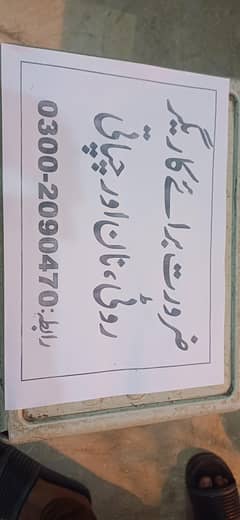 ضرورت برائے کاریگر
روٹی، نان اور چپاتی
رابطہ: 0300-2090470